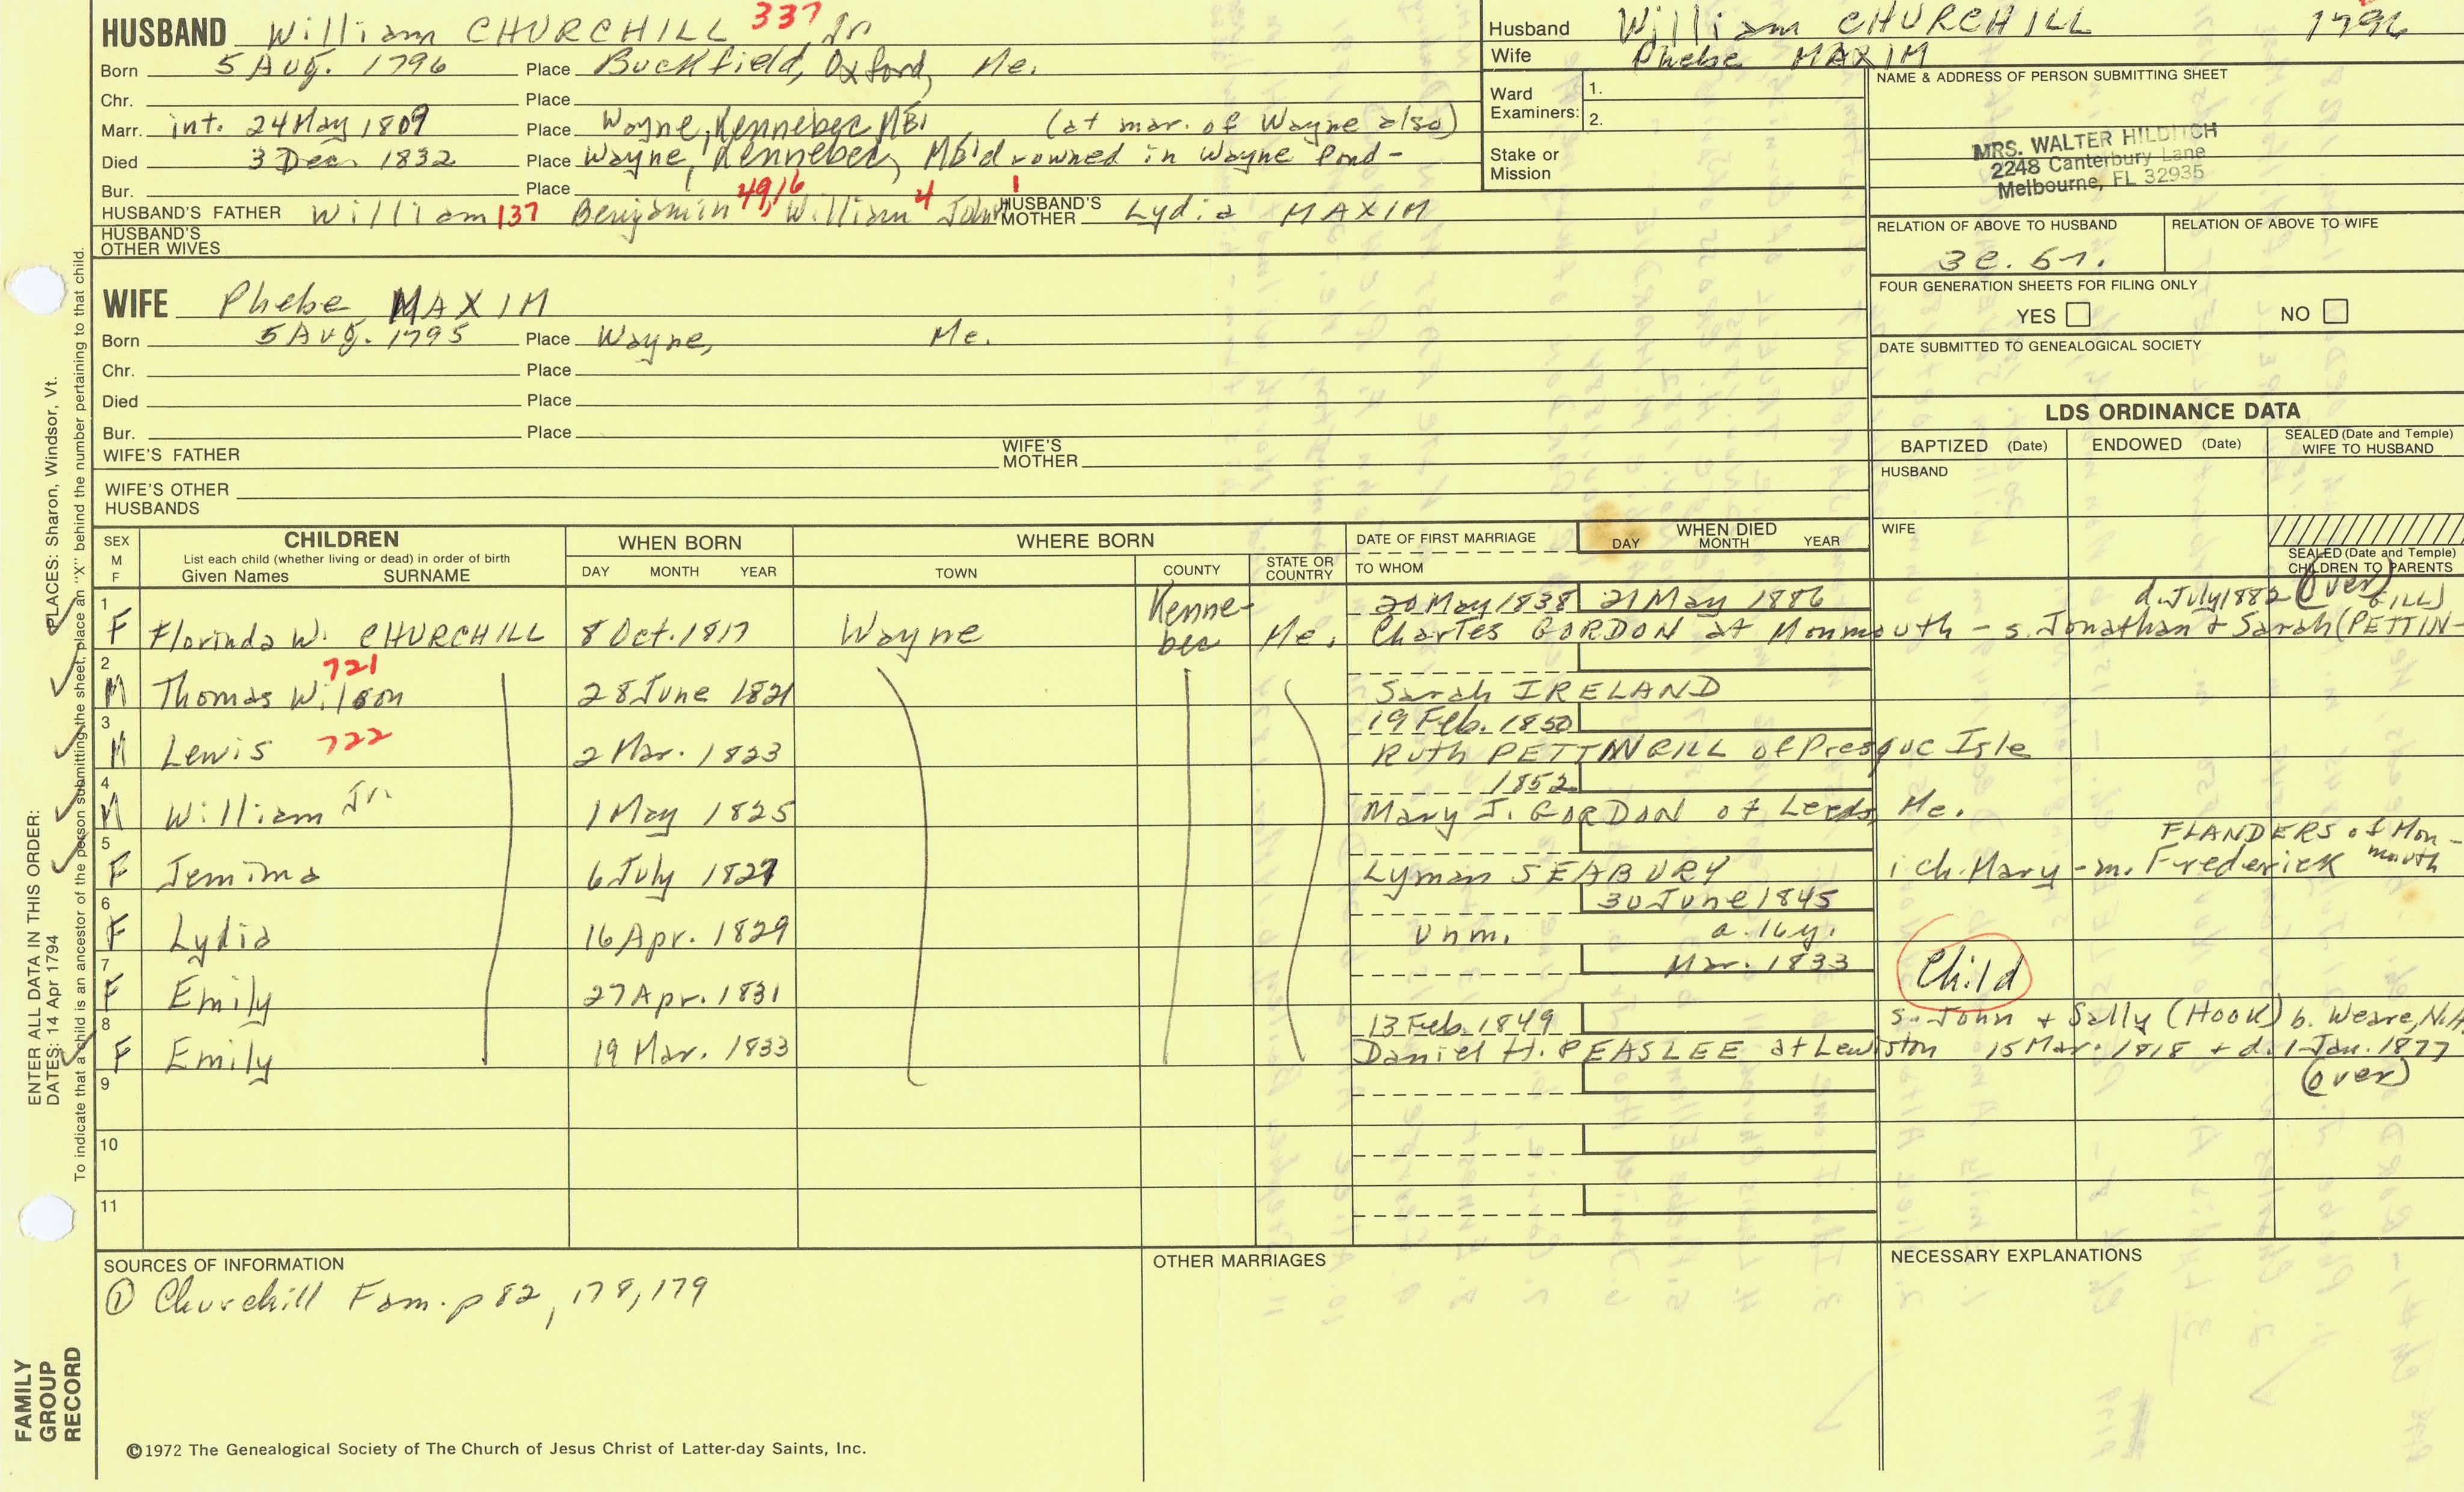 HUSBAND William CHURCHILL 337 Jr.
Born 5 Aug. 1796 Place Buckfield, Oxford, Me.
Chr. Place
Marr. int. 24 May 1809 Place Wayne, Kennebec, ME. (at mar. of Wayne also)
Died 3 Dec. 1832 Place Wayne, Kennebec, ME drowned in Wayne Pond -
Bur. Place
HUSBAND'S FATHER William 137 Benjamin 49, William 16 John 4 1 HUSBAND'S MOTHER Lydia MAXIM
HUSBAND'S OTHER WIVES
WIFE Phebe MAXIM
Born 5 Aug. 1795 Place Wayne, Me.
Chr. Place
Died Place
Bur. Place
WIFE'S FATHER WIFE'S MOTHER
WIFE'S OTHER HUSBANDS
Husband William CHURCHILL 1796
Wife Phebe MAXIM
Ward Examiners: 1.
2.
Stake or Mission
NAME & ADDRESS OF PERSON SUBMITTING SHEET
MRS. WALTER HILDITCH
2248 Canterbury Lane
Melbourne, FL 32935
RELATION OF ABOVE TO HUSBAND RELATION OF ABOVE TO WIFE
3c. 5r.
FOUR GENERATION SHEETS FOR FILING ONLY
YES NO
DATE SUBMITTED TO GENEALOGICAL SOCIETY
LDS ORDINANCE DATA
BAPTIZED (Date) ENDOWED (Date) SEALED (Date and Temple) WIFE TO HUSBAND
HUSBAND
WIFE
SEALED (Date and Temple) CHILDREN TO PARENTS
SEX M F CHILDREN List each child (whether living or dead) in order of birth Given Names SURNAME WHEN BORN DAY MONTH YEAR WHERE BORN TOWN COUNTY STATE OR COUNTRY DATE OF FIRST MARRIAGE TO WHOM WHEN DIED DAY MONTH YEAR
1 20 May 1838 21 May 1886 d. July 1882 (over)
F Florinda W. CHURCHILL 8 Oct. 1817 Wayne Kennebec Me. Charles GORDON at Monmouth - s. Jonathan & Sarah (PETTIN-GILL)
2 721
M Thomas Wilson 28 June 1821 Sarah IRELAND
3 19 Feb. 1850
M Lewis 722 2 Mar. 1823 Ruth PETTINGILL of Presque Isle
4 1852
M William Jr. 1 May 1825 Mary J. GORDON of Leeds, Me.
5
F Jemima 6 July 1827 Lyman SEABURY 1 ch. Mary - m. Frederick FLANDERS of Mon-mouth
6 30 June 1845
F Lydia 16 Apr. 1829 Unm. a. 16y.
7 Mar. 1833
F Emily 27 Apr. 1831 Child
8 13 Feb. 1849 s. John & Sally (HOOK) b. Weare, N.H.
F Emily 19 Mar. 1833 Daniel H. PEASLEE at Lewiston 15 Mar. 1818 + d. 1 Jan. 1877
(over)
9
10
11
SOURCES OF INFORMATION
① Churchill Fam. p 82, 178, 179
OTHER MARRIAGES
NECESSARY EXPLANATIONS
©1972 The Genealogical Society of The Church of Jesus Christ of Latter-day Saints, Inc.
ENTER ALL DATA IN THIS ORDER:
DATES: 14 Apr 1794 PLACES: Sharon, Windsor, Vt.
To indicate that a child is an ancestor of the person submitting the sheet, place an "X" behind the number pertaining to that child.
FAMILY GROUP RECORD